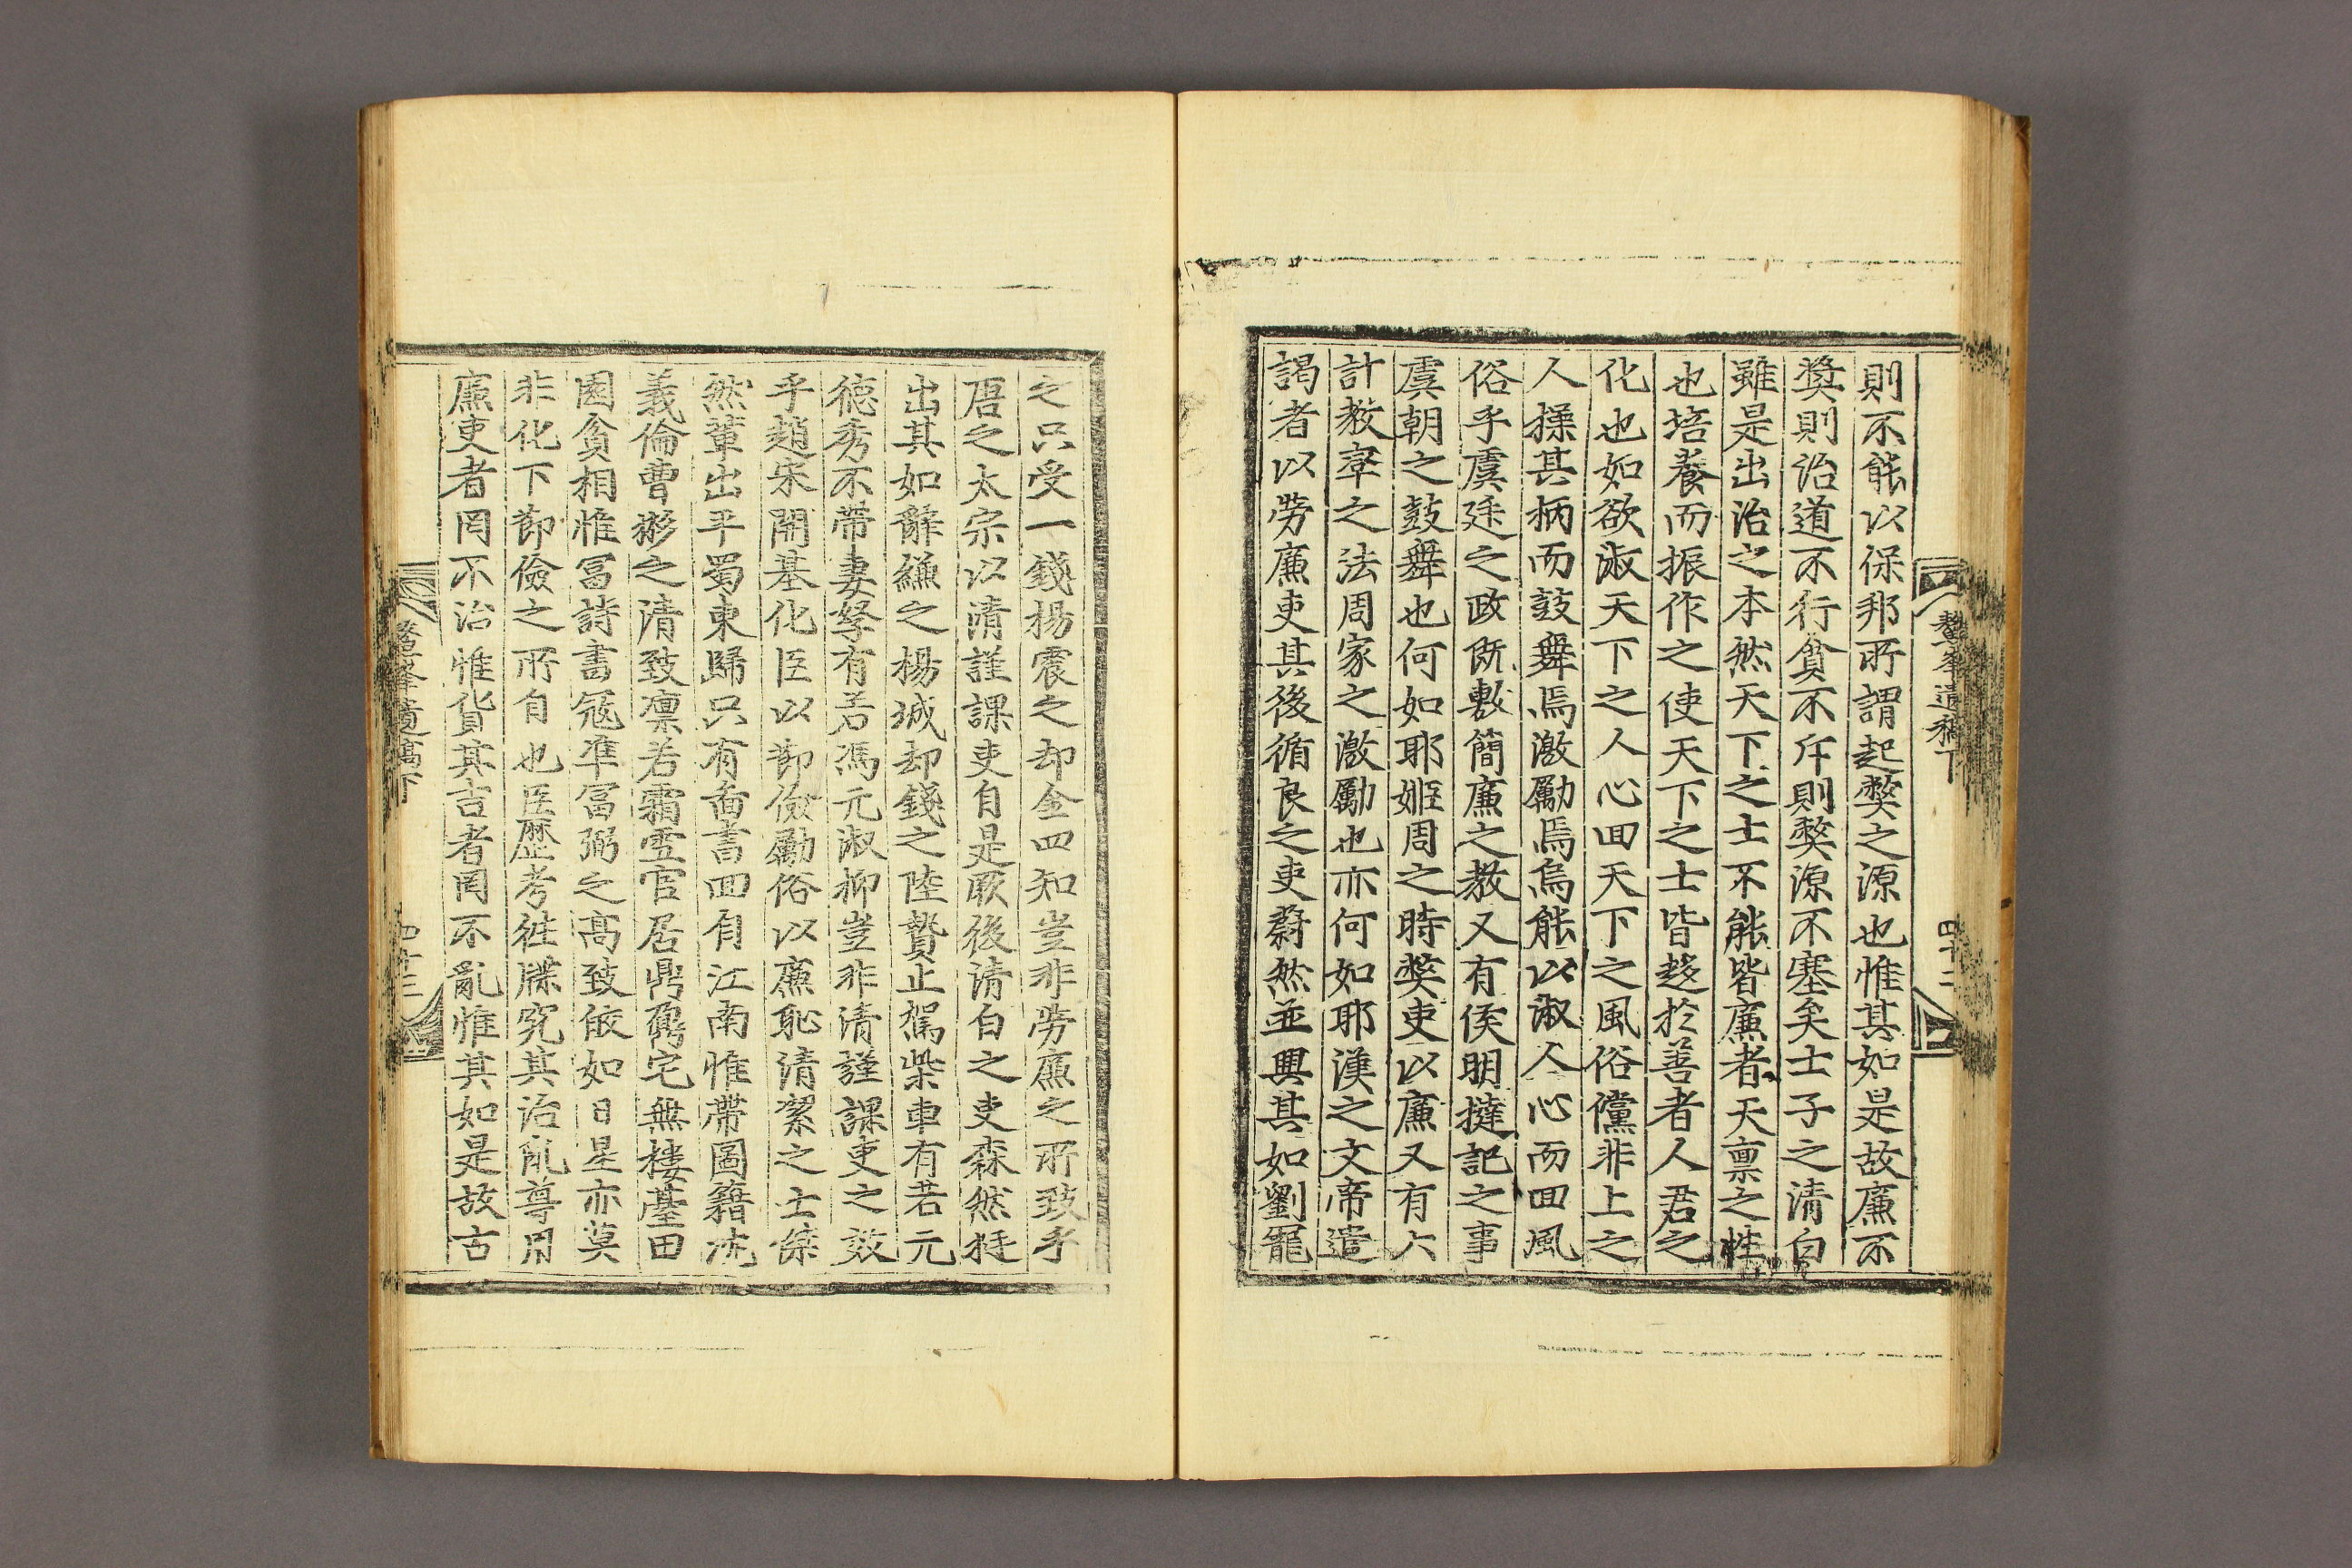 鰲峯遺稿下
四十二
則不能以保邦所謂起獘之源也惟其如是故廉不
奬則治道不行貧不斥則獘源不塞矣士子之清白
雖是出治之本然天下之士不能皆廉者天禀之性
也培養而振作之使天下之士皆趍於善者人君之
化也如欲淑天下之人心回天下之風俗儻非上之
人操其柄而鼓舞焉激勵焉烏能以淑人心而回風
俗乎虞廷之政旣敷簡廉之教又有侯明撻記之事
虞朝之鼓舞也何如耶姬周之時獘吏以廉又有六
計教宰之法周家之激勵也亦何如耶漢之文帝遣
謁者以勞廉吏其後循良之吏蔚然並興其如劉寵
之只受一錢楊震之却金四知豈非勞廉之所致乎
唐之太宗以清謹課吏自是厥後清白之吏森然挺
出其如辭縑之楊城却錢之陸贄止駕柴車有若元
德秀不帶妻孥有若馮元淑抑豈非清謹課吏之效
乎趙宋開基化臣以節儉勵俗以廉恥清潔之士傑
然輩出平蜀東歸只有畵書回自江南惟帶圖籍沈
義倫曹彬之清致凛若霜雪官居鼎鼐宅無樓臺田
園貧相惟冨詩書冦準冨弼之高致皎如日星亦莫
非化下節儉之所自也臣歷考徃牒究其治亂尊用
廉吏者罔不治惟貨其吉者罔不亂惟其如是故古
鰲峯遺稿下
四十三